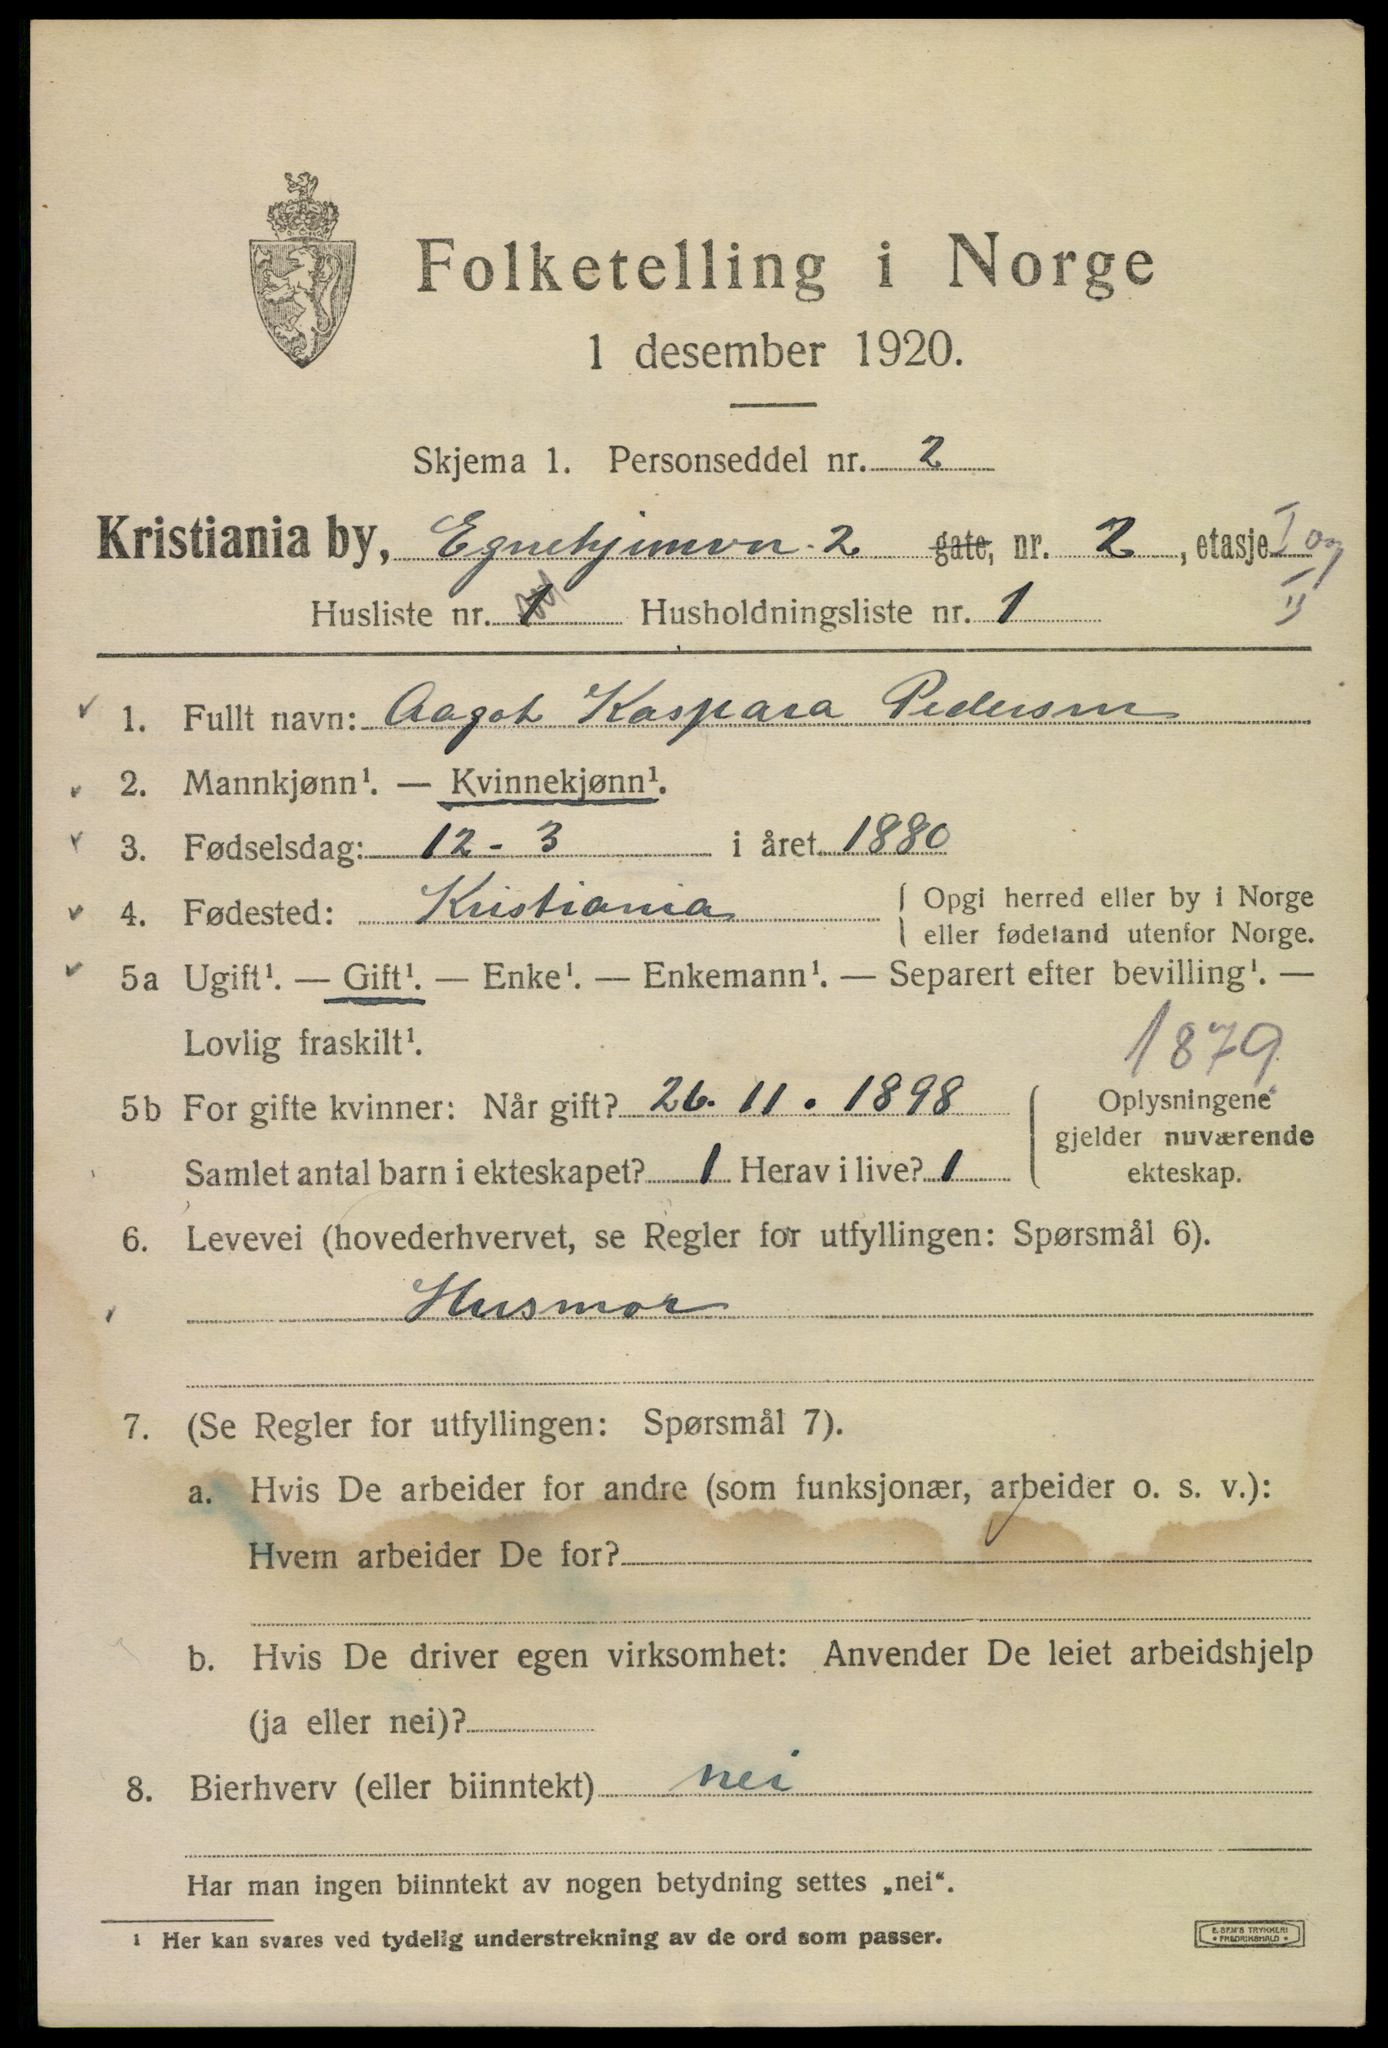 Folketelling i Norge
1 desember 1920.
Skjema 1. Personseddel nr. 2
Kristiania by, Egnehjemvn. 2 gate, nr. 2, etasje I og
Husliste nr. 1 Husholdningsliste nr. 1 II
1. Fullt navn: Aagot Kaspara Pedersen
2. Mannkjønn¹. — Kvinnekjønn¹.
3. Fødselsdag: 12-3 i året 1880
4. Fødested: Kristiania { Opgi herred eller by i Norge
eller fødeland utenfor Norge.
5a Ugift¹. — Gift¹. — Enke¹. — Enkemann¹. — Separert efter bevilling¹. —
Lovlig fraskilt¹.
1879
5b For gifte kvinner: Når gift? 26. 11. 1898 { Oplysningene
gjelder nuværende
Samlet antal barn i ekteskapet? 1 Herav i live? 1
ekteskap.
6. Levevei (hovederhvervet, se Regler for utfyllingen: Spørsmål 6).
Husmor
7. (Se Regler for utfyllingen: Spørsmål 7).
a. Hvis De arbeider for andre (som funksjonær, arbeider o. s. v.):
Hvem arbeider De for?
b. Hvis De driver egen virksomhet: Anvender De leiet arbeidshjelp
(ja eller nei)?
8. Bierhverv (eller biinntekt) nei
Har man ingen biinntekt av nogen betydning settes „nei“.
¹ Her kan svares ved tydelig understrekning av de ord som passer.
E. SEM'S TRYKKERI
• FREDRIKSHALD •